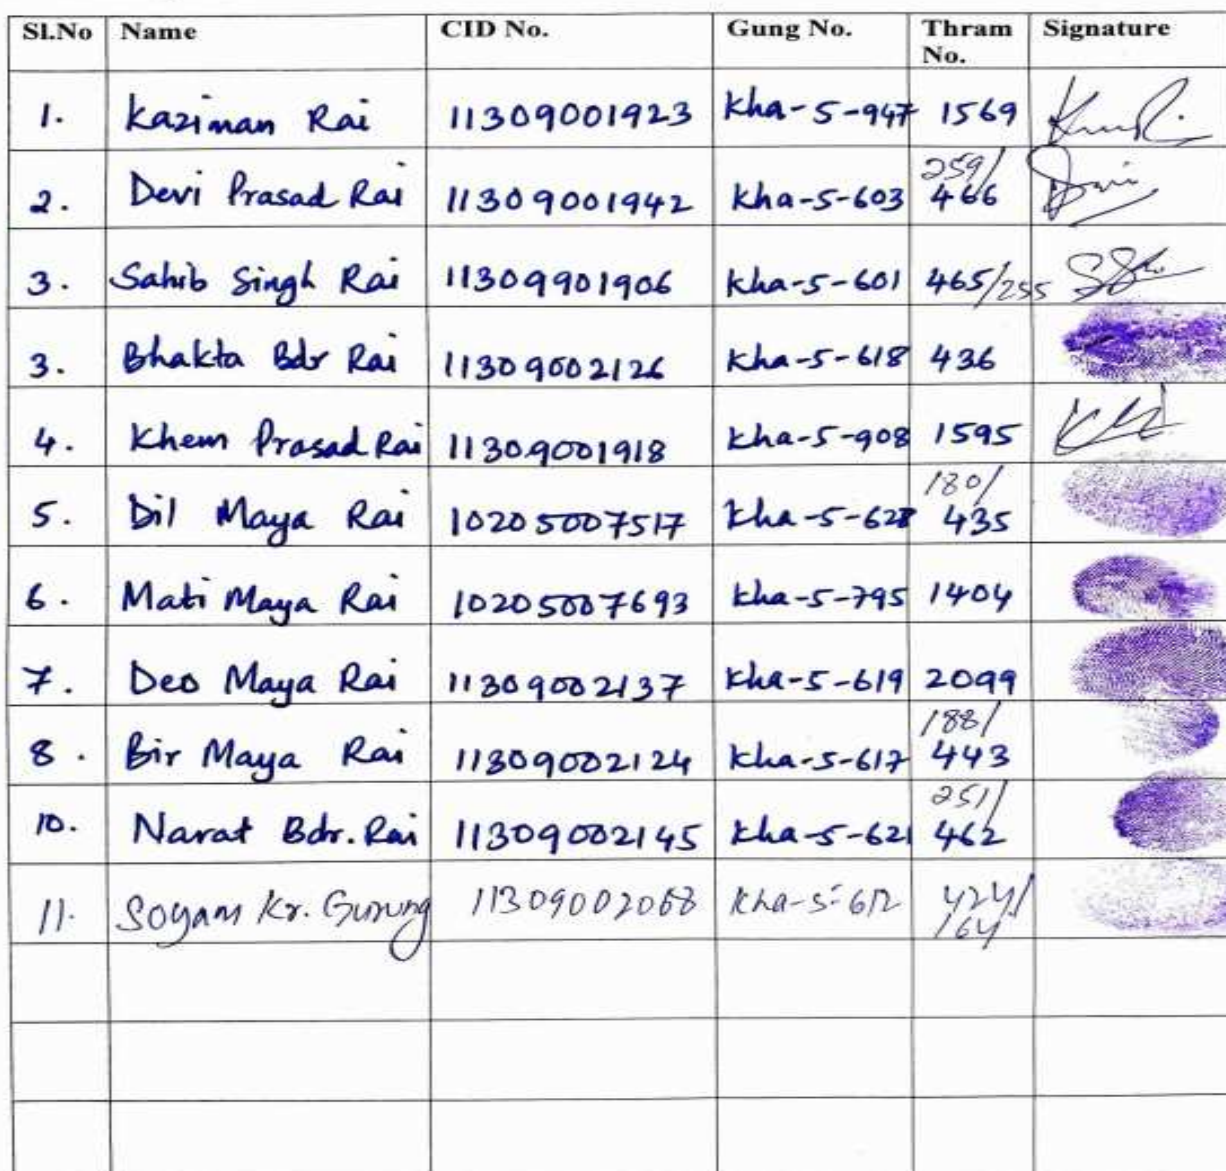 Sl.No Name CID No. Gung No. Thram No. Signature
1. Kaziman Rai 11309001923 Kha-5-947 1569
2. Devi Prasad Rai 11309001942 Kha-5-603 259/ 466
3. Sahib Singh Rai 11309901906 Kha-5-601 465/255
3. Bhakta Bdr Rai 11309002126 Kha-5-618 436
4. Khem Prasad Rai 11309001918 Kha-5-908 1595
5. Dil Maya Rai 10205007517 Kha-5-628 180/ 435
6. Mati Maya Rai 10205007693 Kha-5-795 1404
7. Deo Maya Rai 11309002137 Kha-5-619 2099
8. Bir Maya Rai 11309002124 Kha-5-617 188/ 443
10. Narat Bdr. Rai 11309002145 Kha-5-621 251/ 462
11. Soyam Kr. Gurung 11309002068 Kha-5-612 424/ 164